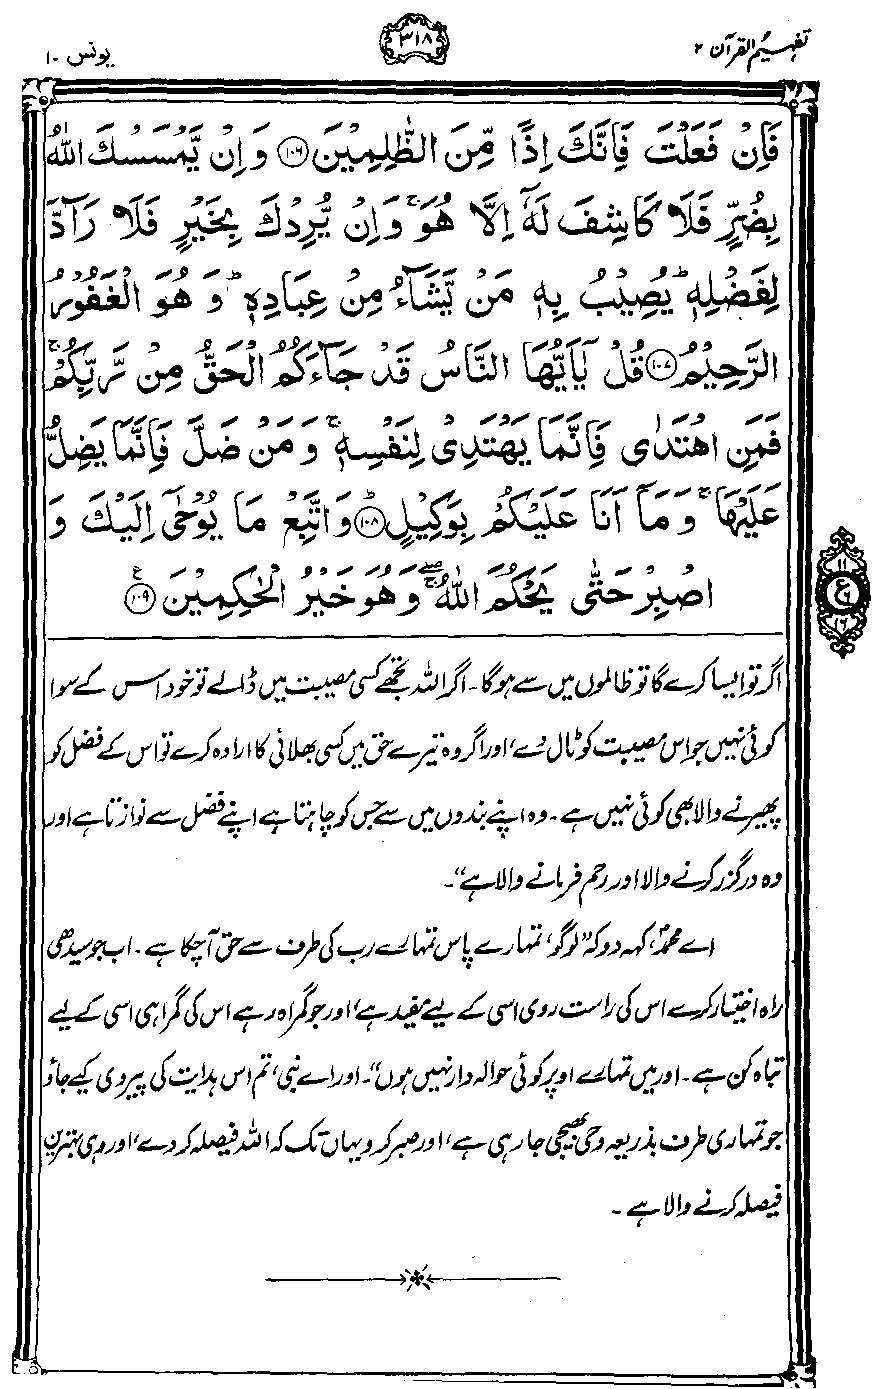 تفہیم القرآن ۲
۳۱۸
یونس ۱۰
فَاِنْ فَعَلْتَ فَاِنَّكَ اِذًا مِّنَ الظّٰلِمِيْنَ ﴿۱۰۶﴾ وَاِنْ يَّمْسَسْكَ اللّٰهُ
بِضُرٍّ فَلَا كَاشِفَ لَهٗٓ اِلَّا هُوَ ۚ وَاِنْ يُّرِدْكَ بِخَيْرٍ فَلَا رَآدَّ
لِفَضْلِهٖ ؕ يُصِيْبُ بِهٖ مَنْ يَّشَآءُ مِنْ عِبَادِهٖ ؕ وَهُوَ الْغَفُوْرُ
الرَّحِيْمُ ﴿۱۰۷﴾ قُلْ يٰٓاَيُّهَا النَّاسُ قَدْ جَآءَكُمُ الْحَقُّ مِنْ رَّبِّكُمْ ۚ
فَمَنِ اهْتَدٰى فَاِنَّمَا يَهْتَدِيْ لِنَفْسِهٖ ۚ وَمَنْ ضَلَّ فَاِنَّمَا يَضِلُّ
عَلَيْهَا ۚ وَمَآ اَنَا عَلَيْكُمْ بِوَكِيْلٍ ﴿۱۰۸﴾ ؕ وَاتَّبِعْ مَا يُوْحٰٓى اِلَيْكَ وَ
اصْبِرْ حَتّٰى يَحْكُمَ اللّٰهُ ۖۚ وَهُوَ خَيْرُ الْحٰكِمِيْنَ ﴿۱۰۹﴾ ع
۱۱
ع
۶
۱۶
اگر تو ایسا کرے گا تو ظالموں میں سے ہوگا۔ اگر اللہ تجھے کسی مصیبت میں ڈالے تو خود اس کے سوا
کوئی نہیں جو اس مصیبت کو ٹال دے، اور اگر وہ تیرے حق میں کسی بھلائی کا ارادہ کرے تو اس کے فضل کو
پھیرنے والا بھی کوئی نہیں ہے۔ وہ اپنے بندوں میں سے جس کو چاہتا ہے اپنے فضل سے نوازتا ہے اور
وہ درگزر کرنے والا اور رحم فرمانے والا ہے“۔
اے محمدؐ، کہہ دو کہ ”لوگو، تمہارے پاس تمہارے رب کی طرف سے حق آچکا ہے۔ اب جو سیدھی
راہ اختیار کرے اس کی راست روی اسی کے لیے مفید ہے، اور جو گمراہ رہے اس کی گمراہی اسی کے لیے
تباہ کن ہے۔ اور میں تمہارے اوپر کوئی حوالہ دار نہیں ہوں“۔ اور اے نبی، تم اس ہدایت کی پیروی کیے جاؤ
جو تمہاری طرف بذریعہ وحی بھیجی جا رہی ہے، اور صبر کرو یہاں تک کہ اللہ فیصلہ کر دے، اور وہی بہترین
فیصلہ کرنے والا ہے۔